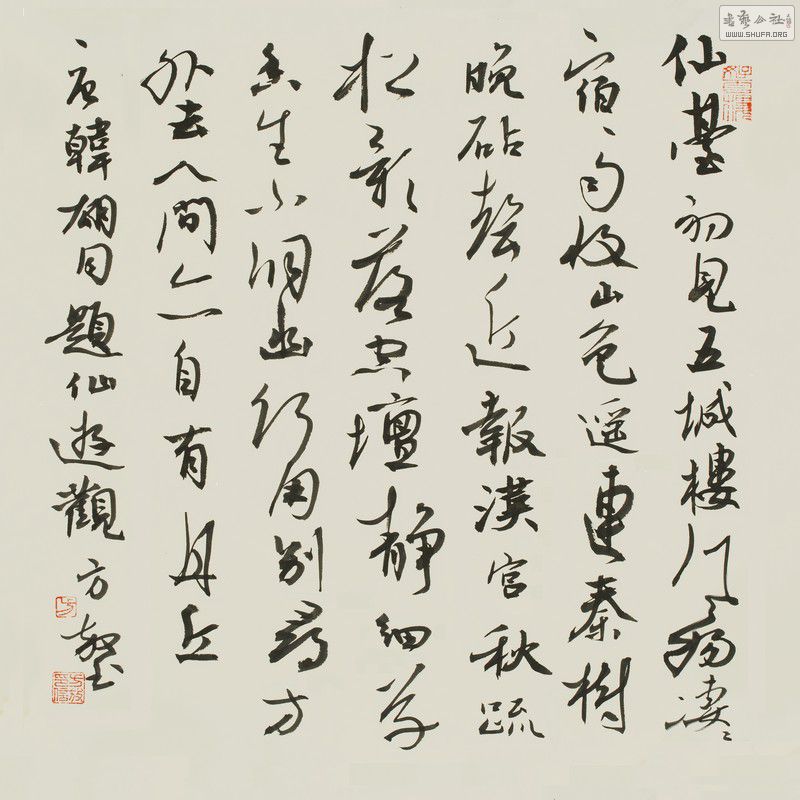 书艺公社
WWW.SHUFA.ORG
仙臺初見五城樓風物凄々
宿雨收山色遥連秦樹
晚砧聲近報漢宮秋疏
松影落空壇靜細草
香生小洞幽何用別尋方
外去人間亦自有丹丘
唐韓翃同題仙遊觀 方